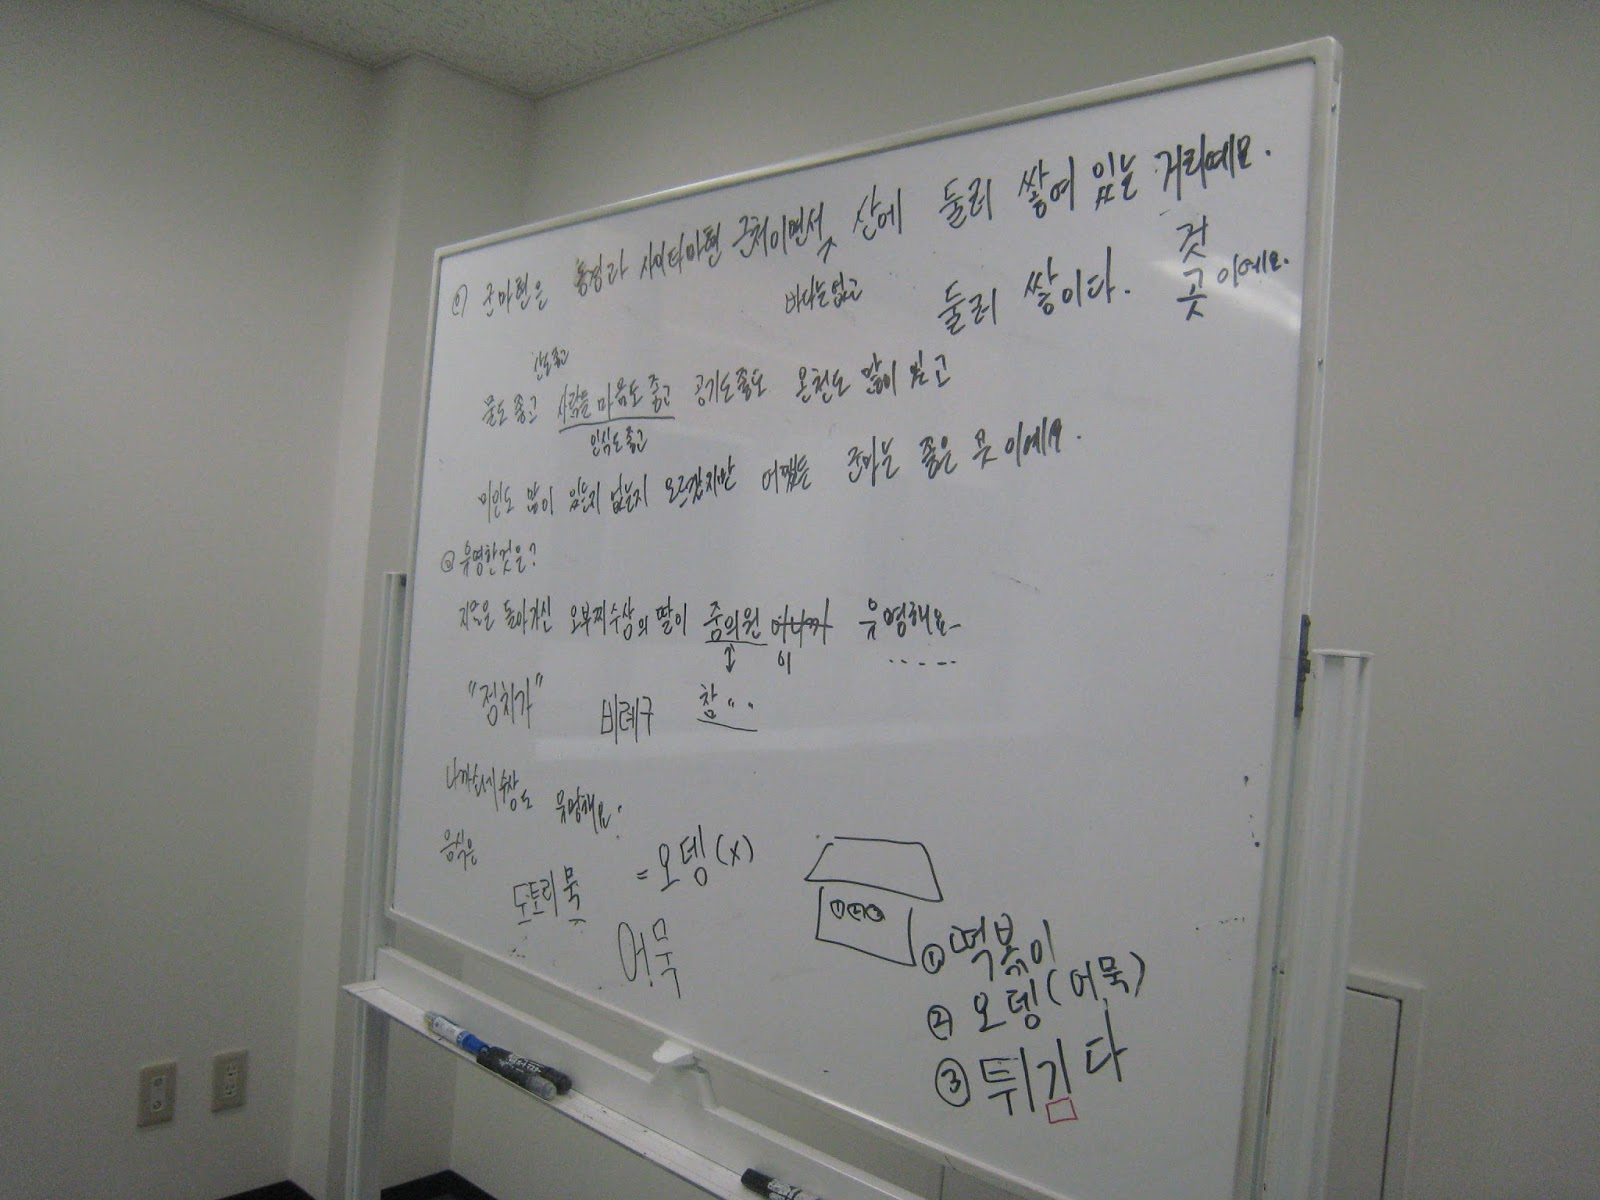 ① 군마현은 동경과 사이타마현 근처이면서 산에 둘러 쌓여 있는 거리예요.
바다는 없고 둘러 쌓이다. 것
곳이에요.
산도 좋고
물도 좋고 사람들 마음도 좋고 공기도 좋도 온천도 많이 있고
인식도 좋고
미인도 많이 있는지 없는지 모르겠지만 어쨌든 군마는 좋은 곳이에요.
② 유명한것은?
지금은 돌아가신 오부찌수상의 딸이 중의원 이니까 유명해요
이
"정치가" 비례구 참‥
나까소네수상도 유명해요.
음식은
도토리묵 = 오뎅(x)
어묵
①②③
① 떡볶이
② 오뎅(어묵)
③ 튀김다